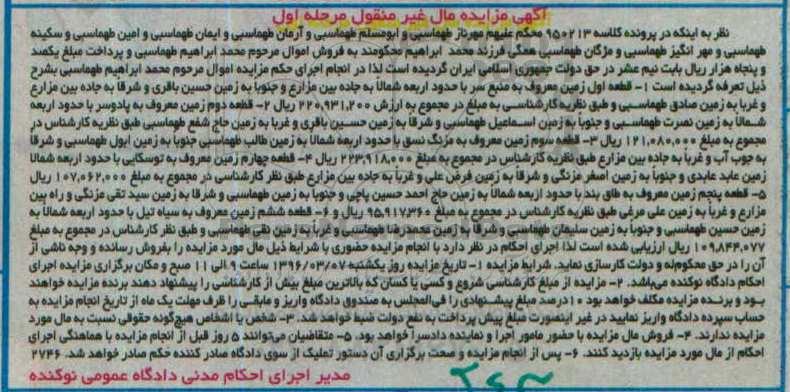 آگهی مزایده مال غیر منقول مرحله اول
نظر به اینکه در پرونده کلاسه ۹۵۰۲۱۳ محکم علیهم مهرناز طهماسبی و ابومسلم طهماسبی و آرمان طهماسبی و ایمان طهماسبی و امین طهماسبی و سکینه
طهماسبی و مهر انگیز طهماسبی و مژگان طهماسبی همگی فرزند محمد ابراهیم محکومند به فروش اموال مرحوم محمد ابراهیم طهماسبی و پرداخت مبلغ یکصد
و پنجاه هزار ریال بابت نیم عشر در حق دولت جمهوری اسلامی ایران گردیده است لذا در انجام اجرای حکم مزایده اموال مرحوم محمد ابراهیم طهماسبی بشرح
ذیل تعرفه گردیده است ۱- قطعه اول زمین معروف به منبع سر با حدود اربعه شمالاً به جاده بین مزارع و جنوبا به زمین حسین باقری و شرقا به جاده بین مزارع
و غربا به زمین صادق طهماسبی و طبق نظریه کارشناسی به مبلغ در مجموع به ارزش ۲۲۰,۹۳۱,۲۰۰ ریال ۲- قطعه دوم زمین معروف به پادوسر با حدود اربعه
شمالاً به زمین نصرت طهماسبی و جنوباً به زمین اسماعیل طهماسبی و شرقا به زمین حسین باقری و غربا به زمین حاج شفع طهماسبی طبق نظریه کارشناس در
مجموع به مبلغ ۱۲۱,۰۸۰,۰۰۰ ریال ۳- قطعه سوم زمین معروف به مزنگ نسق با حدود اربعه شمالا به زمین طالب طهماسبی جنوبا به زمین ابول طهماسبی و شرقا
به جوب آب و غرباً به جاده بین مزارع طبق نظریه کارشناس در مجموع به مبلغ ۲۲۳,۹۱۸,۰۰۰ ریال ۴- قطعه چهارم زمین معروف به توسکایی با حدود اربعه شمالا
زمین عابد عابدی و جنوباً به زمین اصغر مزنگی و شرقاً به زمین فرض علی و غرباً به جاده بین مزارع طبق نظر کارشناسی در مجموع به مبلغ ۱۰۷,۰۶۲,۰۰۰ ریال
۵- قطعه پنجم زمین معروف به طاق بند با حدود اربعه شمالاً به زمین حاج احمد حسین پاچی و جنوبا به زمین طهماسبی و شرقا به زمین سید تقی مزنگی و راه بین
مزارع و غرباً به زمین علی مرغی طبق نظریه کارشناس در مجموع به مبلغ ۹۵,۹۱۷,۳۶۰ ریال و ۶- قطعه ششم زمین معروف به سیاه تیل با حدود اربعه شمالا به
زمین حسین طهماسبی و جنوبا به زمین سلیمان طهماسبی و شرقا به زمین محمدرضا طهماسبی و غرباً به زمین نقی طهماسبی و طبق نظر کارشناس در مجموع به مبلغ
۱۰۹,۸۴۴,۰۷۷ ریال ارزیابی شده است لذا اجرای احکام در نظر دارد با انجام مزایده حضوری با شرایط ذیل مال مورد مزایده را بفروش رسانده و وجه ناشی از
آن را در حق محکوم‌له و دولت کارسازی نماید. شرایط مزایده ۱- تاریخ مزایده روز یکشنبه ۱۳۹۶/۰۳/۰۷ ساعت ۹ الی ۱۱ صبح و مکان برگزاری مزایده اجرای
احکام دادگاه نوکنده می‌باشد. ۲- مزایده از مبلغ کارشناسی شروع و کسی یا کسان که بالاترین مبلغ بیش از کارشناسی را پیشنهاد دهند برنده مزایده خواهند
بود و برنده مزایده مکلف خواهد بود ۱۰ درصد مبلغ پیشنهادی را فی‌المجلس به صندوق دادگاه واریز و مابقی را ظرف مهلت یک ماه از تاریخ انجام مزایده به
حساب سپرده دادگاه واریز نمایید در غیر اینصورت مبلغ پیش پرداخت به نفع دولت ضبط خواهد شد. ۳- شخص یا اشخاص هیچ‌گونه حقوقی نسبت به مال مورد
مزایده ندارند. ۴- فروش مال مزایده با حضور مامور اجرا و نماینده دادسرا خواهد بود. ۵- متقاضیان می‌توانند ۵ روز قبل از انجام مزایده با هماهنگی اجرای
احکام از مال مورد مزایده بازدید کنند. ۶- پس از انجام مزایده و صحت برگزاری آن دستور تملیک از سوی دادگاه صادر کننده حکم صادر خواهد شد. ۲۷۴۶
مدیر اجرای احکام مدنی دادگاه عمومی نوکنده